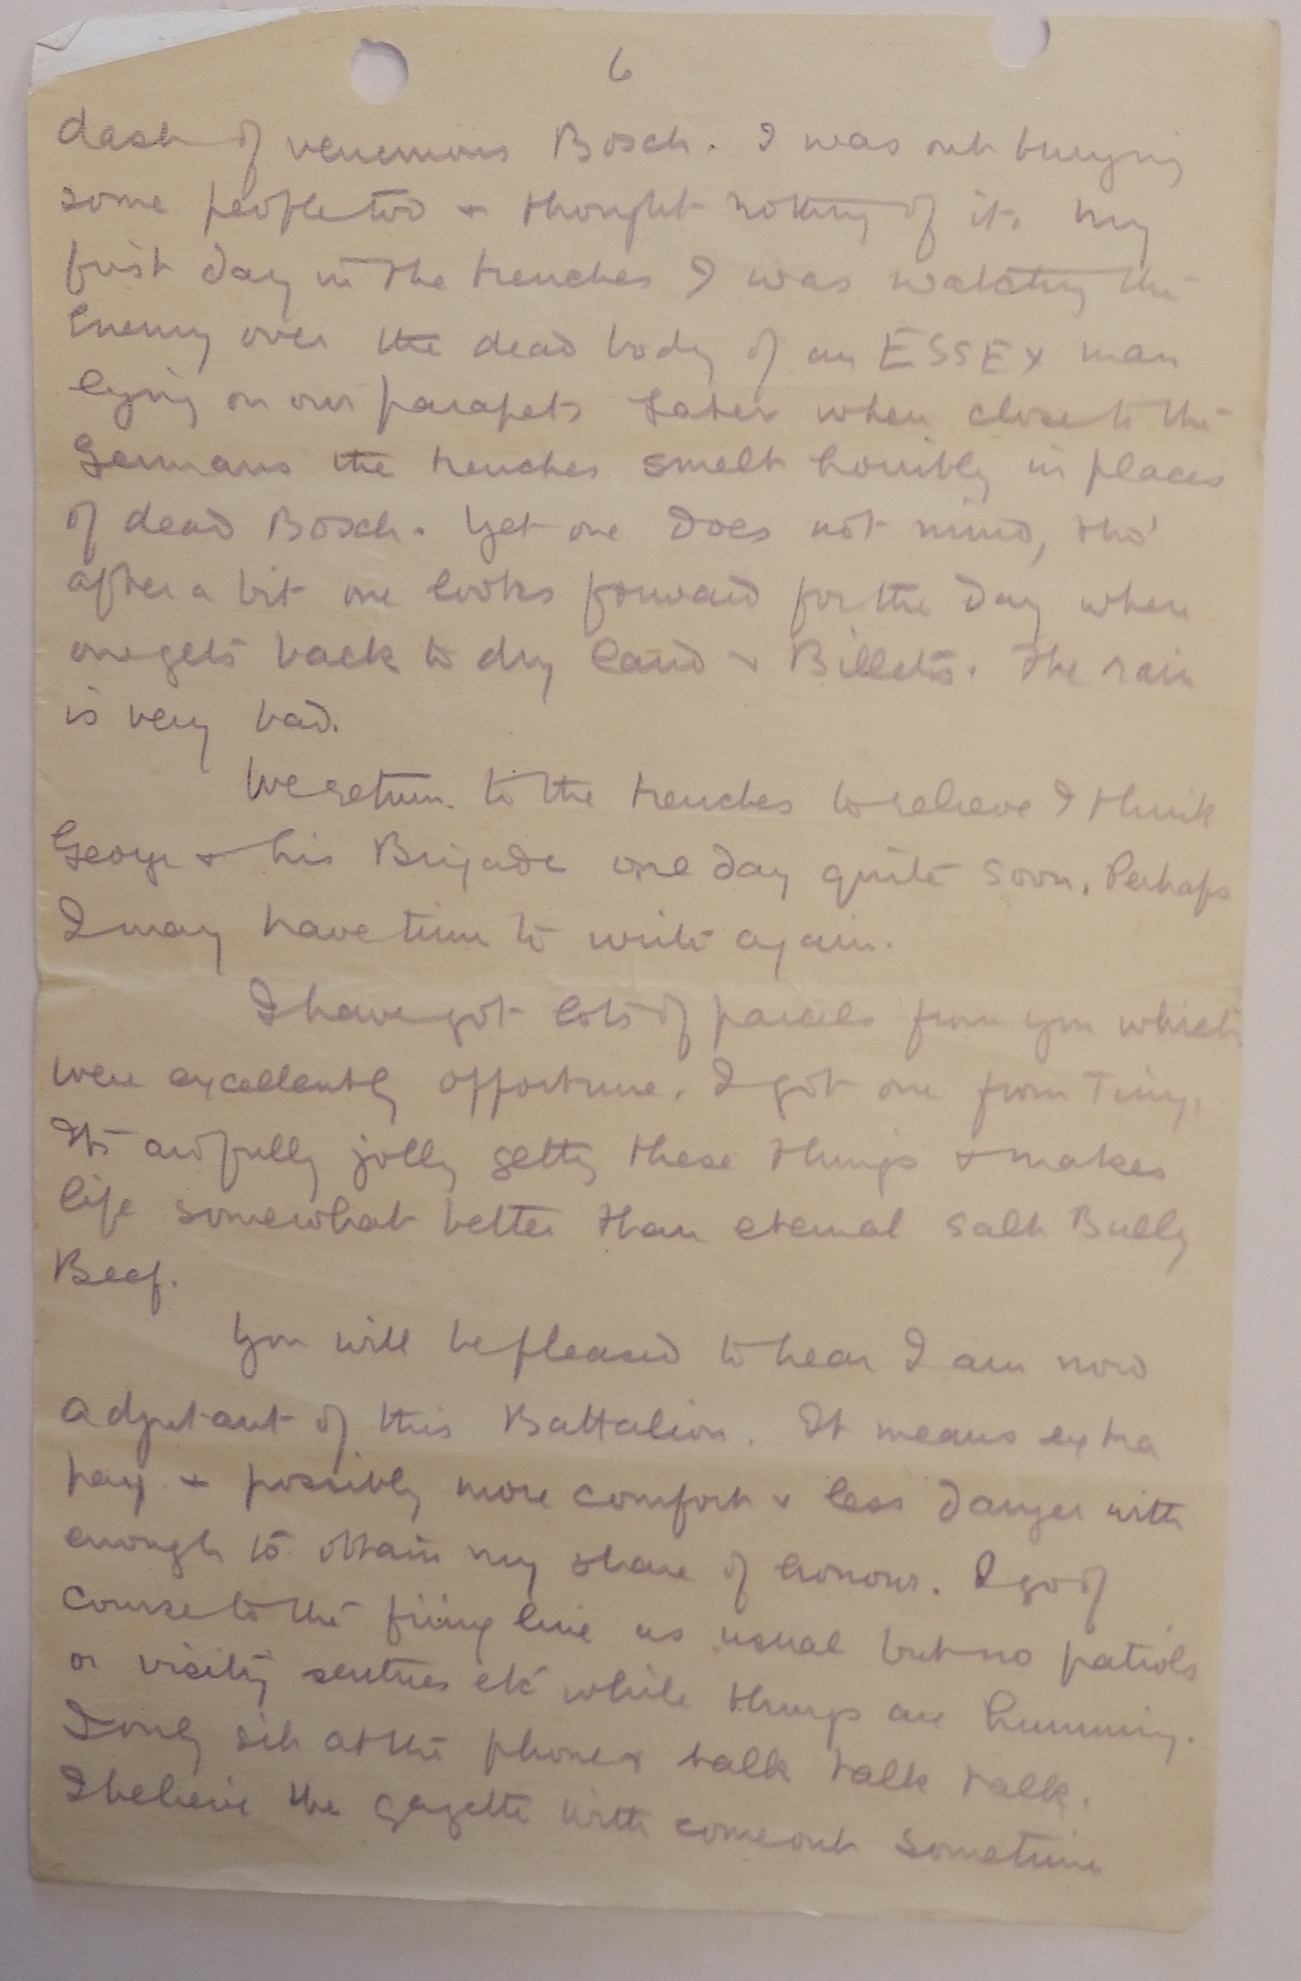 6
dash of venemous Bosch. I was out burying
some people too & thought nothing of it. My
first day in the trenches I was watching the
Enemy over the dead body of an ESSEX man
lying on our parapets Later when close to the
Germans the trenches smelt horribly in places
of dead Bosch. Yet one does not mind, tho'
after a bit one looks forward for the day when
one gets back to dry land & Billets. The rain
is very bad.
We return to the trenches to relieve I think
George & his Brigade one day quite soon. Perhaps
I may have time to write again.
I have got lots of parcels from you which
were excellently opportune. I got one from Tiny.
Its awfully jolly getting these things & makes
life somewhat better than eternal salt Bully
Beef.
You will be pleased to hear I am now
adjutant of this Battalion. It means extra
pay & possibly more comfort & less danger with
enough to obtain my share of honour. I go of
course to the firing line as usual but no patrols
or visiting sentries etc while things are humming.
I only sit at the phone & talk talk talk.
I believe the gazette will come out sometime